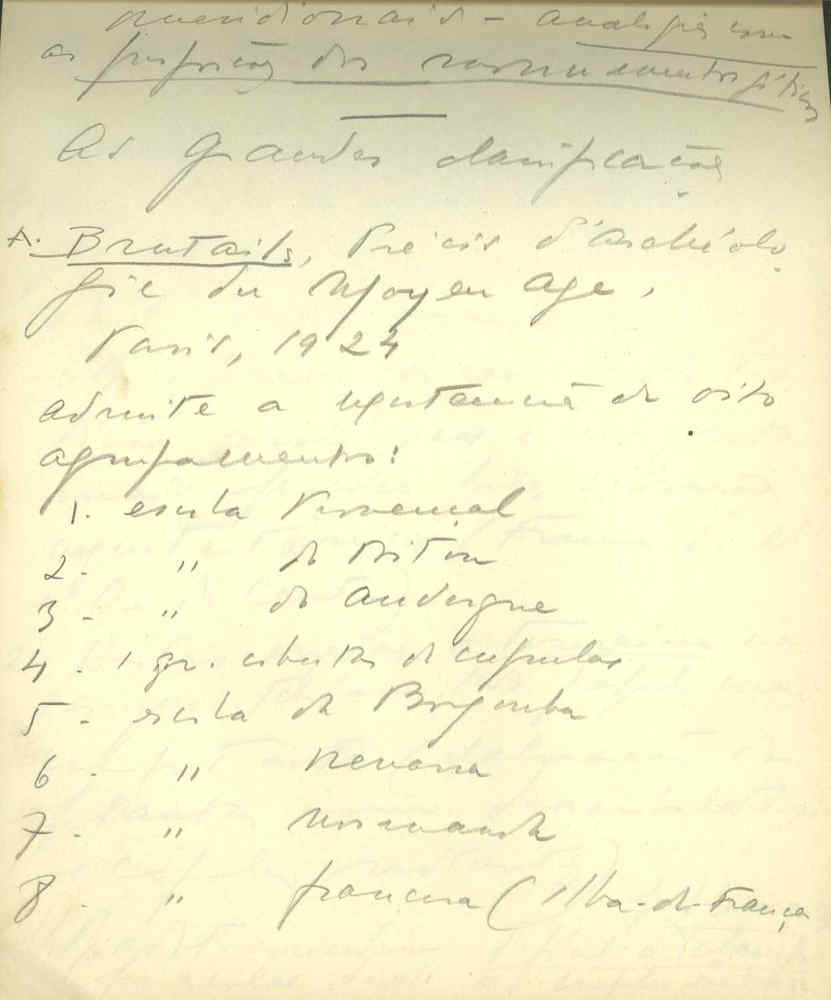 meridionais - analogias com
as proporções dos monumentos góticos
As grandes classificações
A. Brutails, Précis d'archéolo
gie du Moyen Age,
Paris, 1924
admite a existencia de oito
agrupamentos:
1. escola Provençal
2. " do Poitou
3 - " do Auvergne
4. 1 gr. cobertas de cupulas
5 - escola da Borgonha
6 - " renana
7 - " normanda
8. " francesa (Ilha-de-França